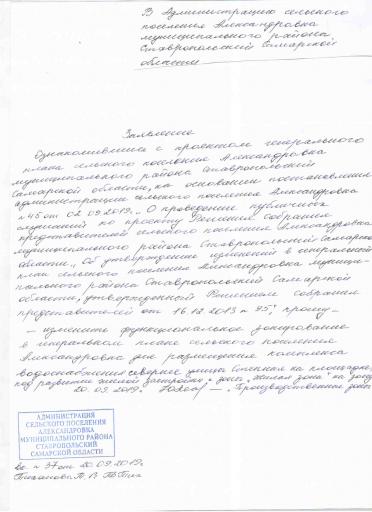 В Администрацию сельского
поселения Александровка
муниципального района
Ставропольский Самарской
области
Заявление
Ознакомившись с проектом генерального
плана сельского поселения Александровка
муниципального района Ставропольский
Самарской области, на основании постановления
администрации сельского поселения Александровка
№ 45 от 02.09.2019г. "О проведении публичных
слушаний по проекту Решения собрания
представителей сельского поселения Александровка
муниципального района Ставропольский Самарской
области "Об утверждении изменений в генеральный
план сельского поселения Александровка муници-
пального района Ставропольский Самарской
области, утвержденный Решением собрания
представителей от 16.12.2013 № 95", прошу
- изменить функциональное зонирование
в генеральном плане сельского поселения
Александровка для размещения комплекса
водоснабжения севернее улицы Степная на площадке,
под развитие жилой застройки с зоны "Жилая зона" на зону
20.09.2019г. "Производственная зона"
АДМИНИСТРАЦИЯ
СЕЛЬСКОГО ПОСЕЛЕНИЯ
АЛЕКСАНДРОВКА
МУНИЦИПАЛЬНОГО РАЙОНА
СТАВРОПОЛЬСКИЙ
САМАРСКОЙ ОБЛАСТИ
вх. № 37 от 20.09.2019г.
П. В.